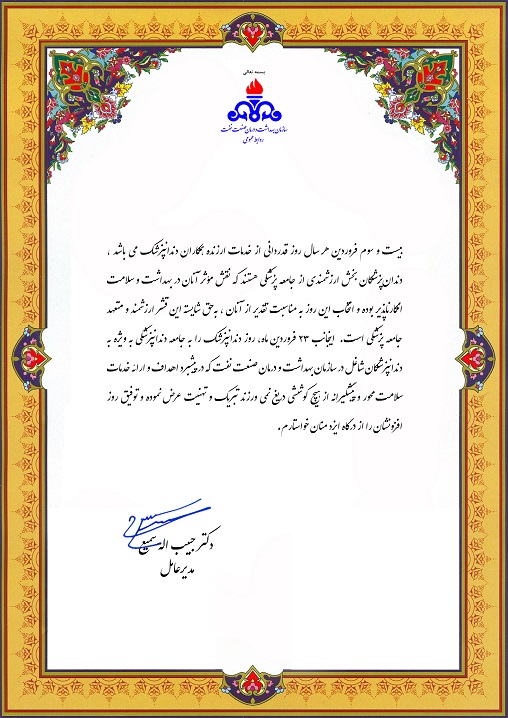 بسمه تعالی
سازمان بهداشت و درمان صنعت نفت
روابط عمومی
بیست و سوم فروردین هر سال روز قدردانی از خدمات ارزنده همکاران دندانپزشک می باشد ،
دندان‌پزشکان بخش ارزشمندی از جامعه پزشکی هستند که نقش مؤثر آنان در بهداشت و سلامت
انکارناپذیر بوده و انتخاب این روز به مناسبت تقدیر از آنان ، به حق شایسته این قشر ارزشمند و متعهد
جامعه پزشکی است. اینجانب ۲۳ فروردین ماه، روز دندانپزشک را به جامعه دندانپزشکی به ویژه به
دندانپزشکان شاغل در سازمان بهداشت و درمان صنعت نفت که در پیشبرد اهداف و ارائه خدمات
سلامت محور و پیشگیرانه از هیچ کوششی دریغ نمی ورزند تبریک و تهنیت عرض نموده و توفیق روز
افزونشان را از درگاه ایزد منان خواستارم.
دکتر حبیب اله سمیع
مدیرعامل